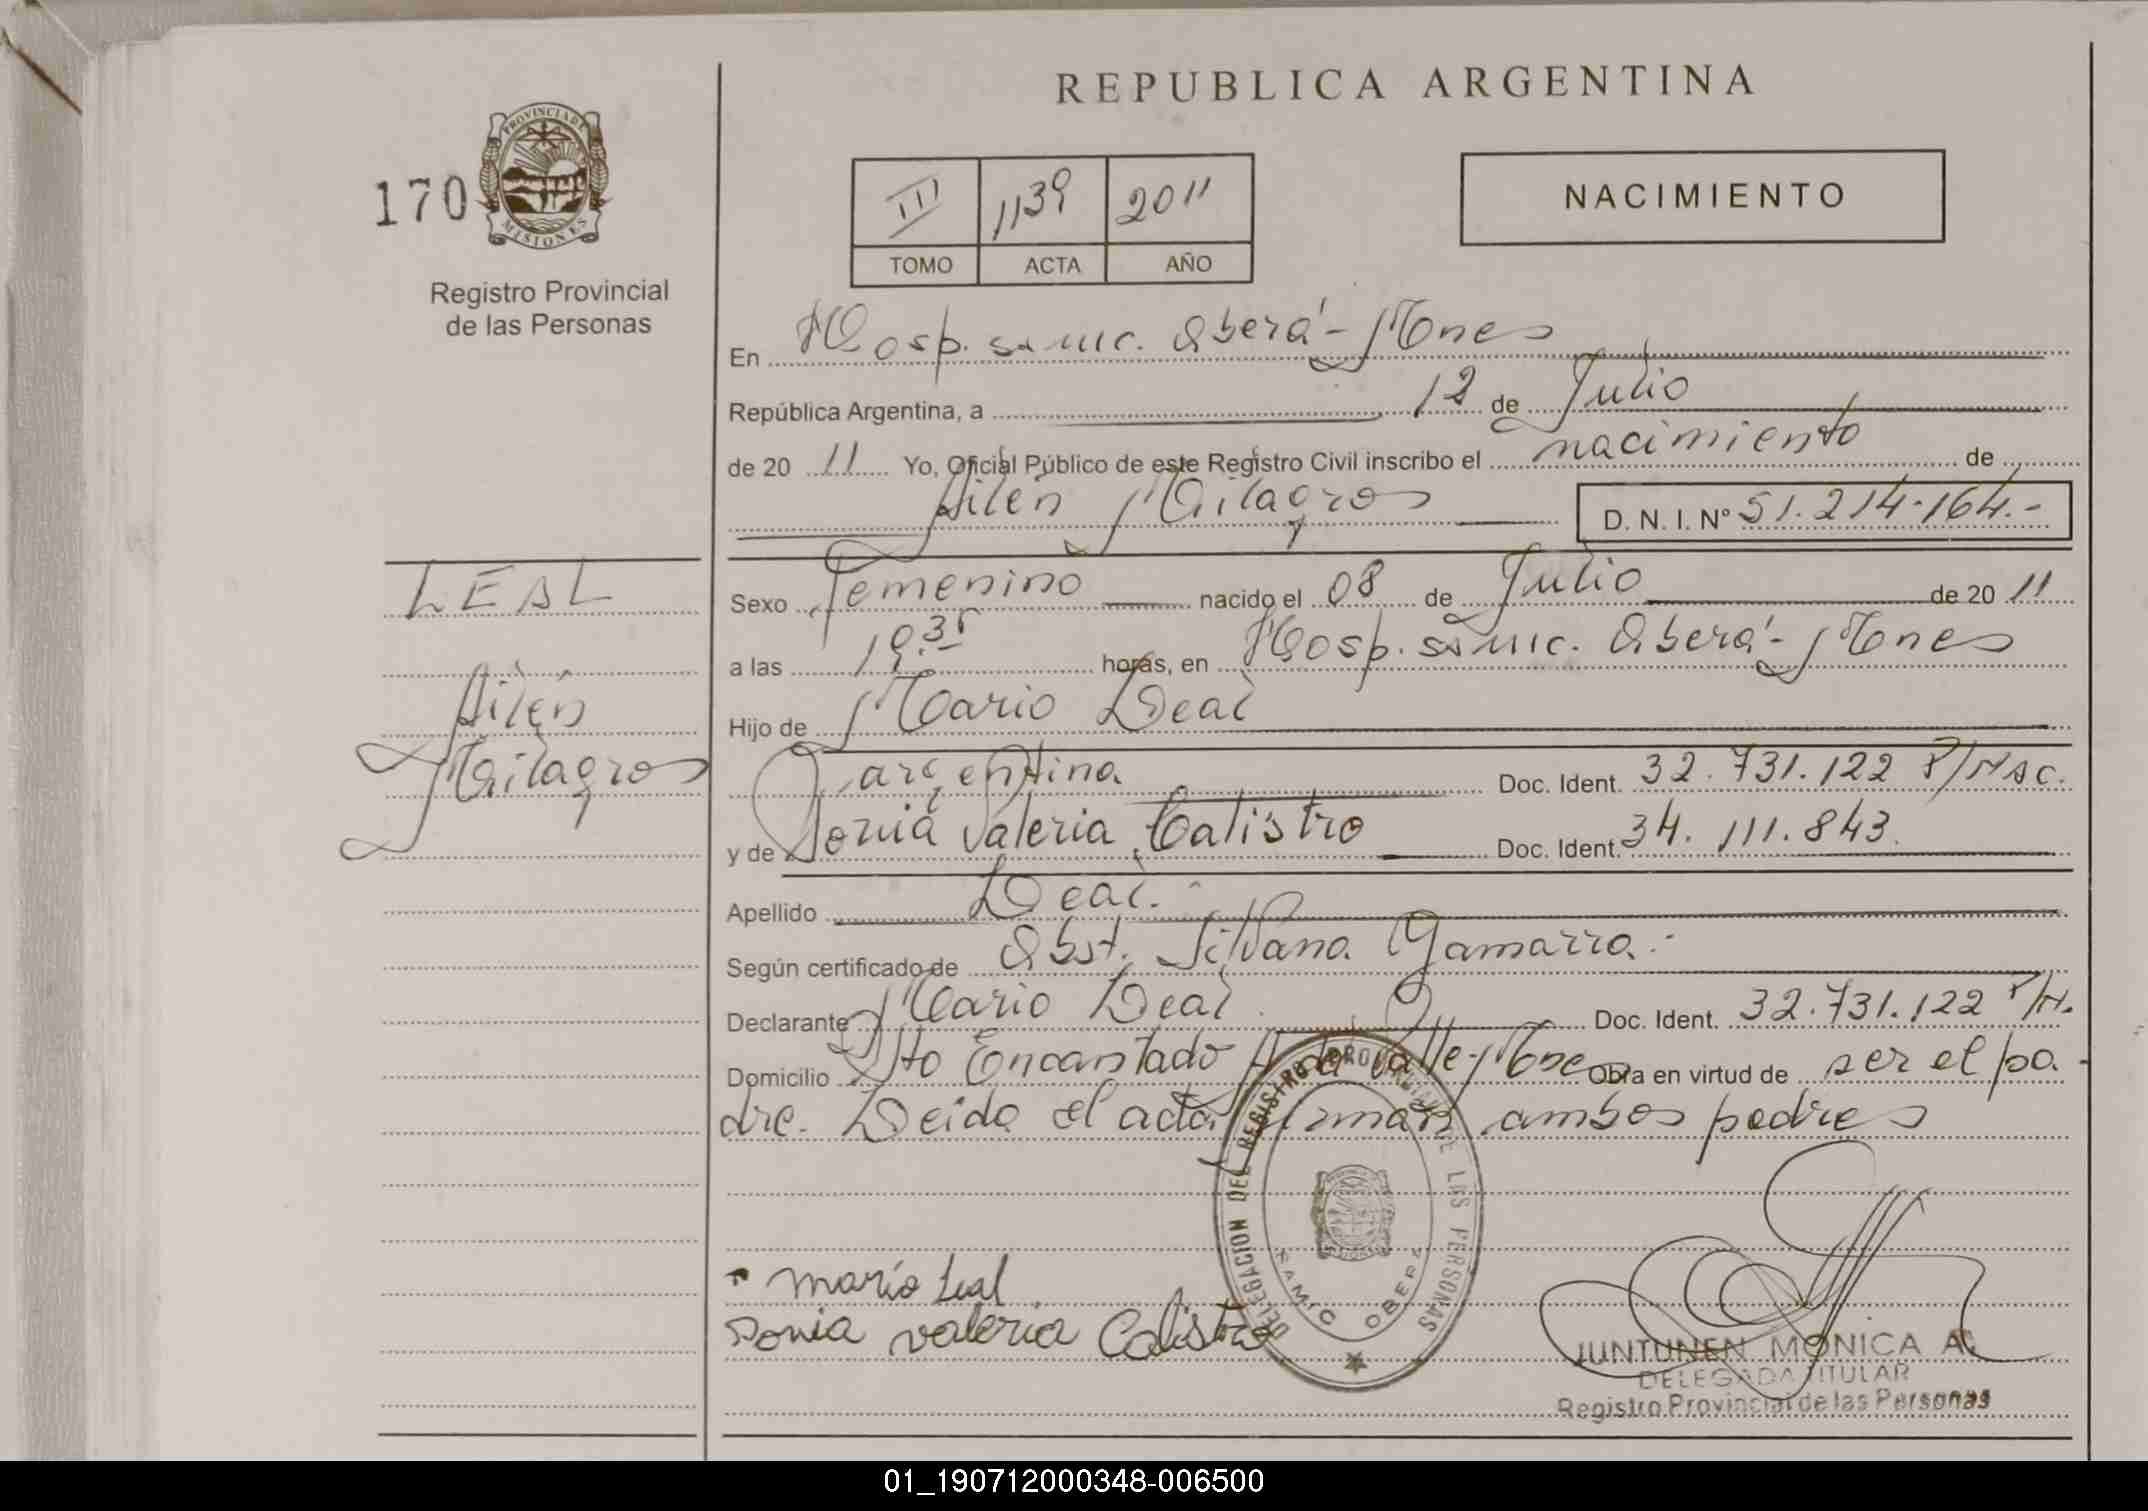 REPUBLICA ARGENTINA
170
PROVINCIA DE MISIONES
Registro Provincial
de las Personas
III 1139 2011
TOMO ACTA AÑO
NACIMIENTO
En Hosp. samic. Oberá - Mnes
República Argentina, a 12 de Julio
de 20 11 Yo, Oficial Público de este Registro Civil inscribo el nacimiento de
Ailén Milagros D. N. I. Nº 51.214.164.-
LEAL
Ailén
Milagros
Sexo femenino nacido el 08 de Julio de 20 11
a las 19:35 horas, en Hosp. samic. Oberá - Mnes
Hijo de Mario Leal
argentina Doc. Ident. 32.731.122 P/Nac.
y de Sonia Valeria Calistro Doc. Ident. 34.111.843
Apellido Leal.-
Según certificado de Obst. Silvana Gamarra.-
Declarante Mario Leal Doc. Ident. 32.731.122 P/N.
Domicilio Sto Encantado A. del Valle - Mnes Obra en virtud de ser el pa-
dre. Leída el acta firman ambos padres
DELEGACION DEL REGISTRO PROVINCIAL DE LAS PERSONAS
RAMIO OBERA
Mario Leal
Sonia Valeria Calistro
JUNTUNEN MONICA A.
DELEGADA TITULAR
Registro Provincial de las Personas
01_190712000348-006500